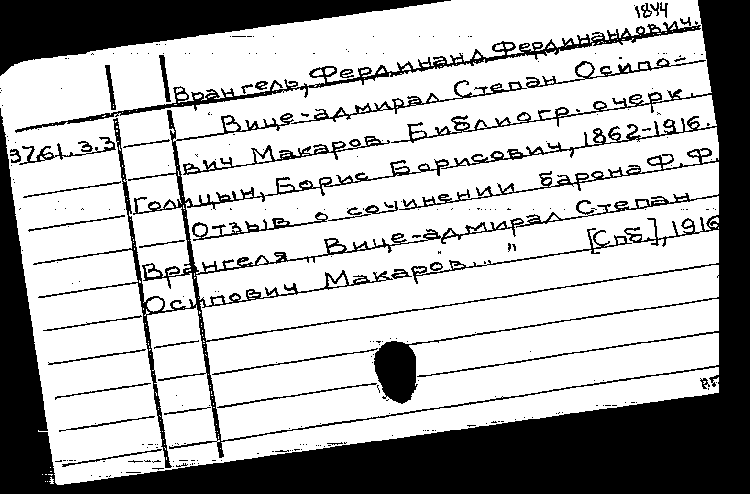 1844
Врангель, Фердинанд Фердинандович.
Вице-адмирал Степан Осипо-
3761.3.3
вич Макаров. Библиогр. очерк.
Голицын, Борис Борисович, 1862-1916.
Отзыв о сочинении барона Ф. Ф.
Врангеля „Вице-адмирал Степан
Осипович Макаров..." [Спб.], 1916